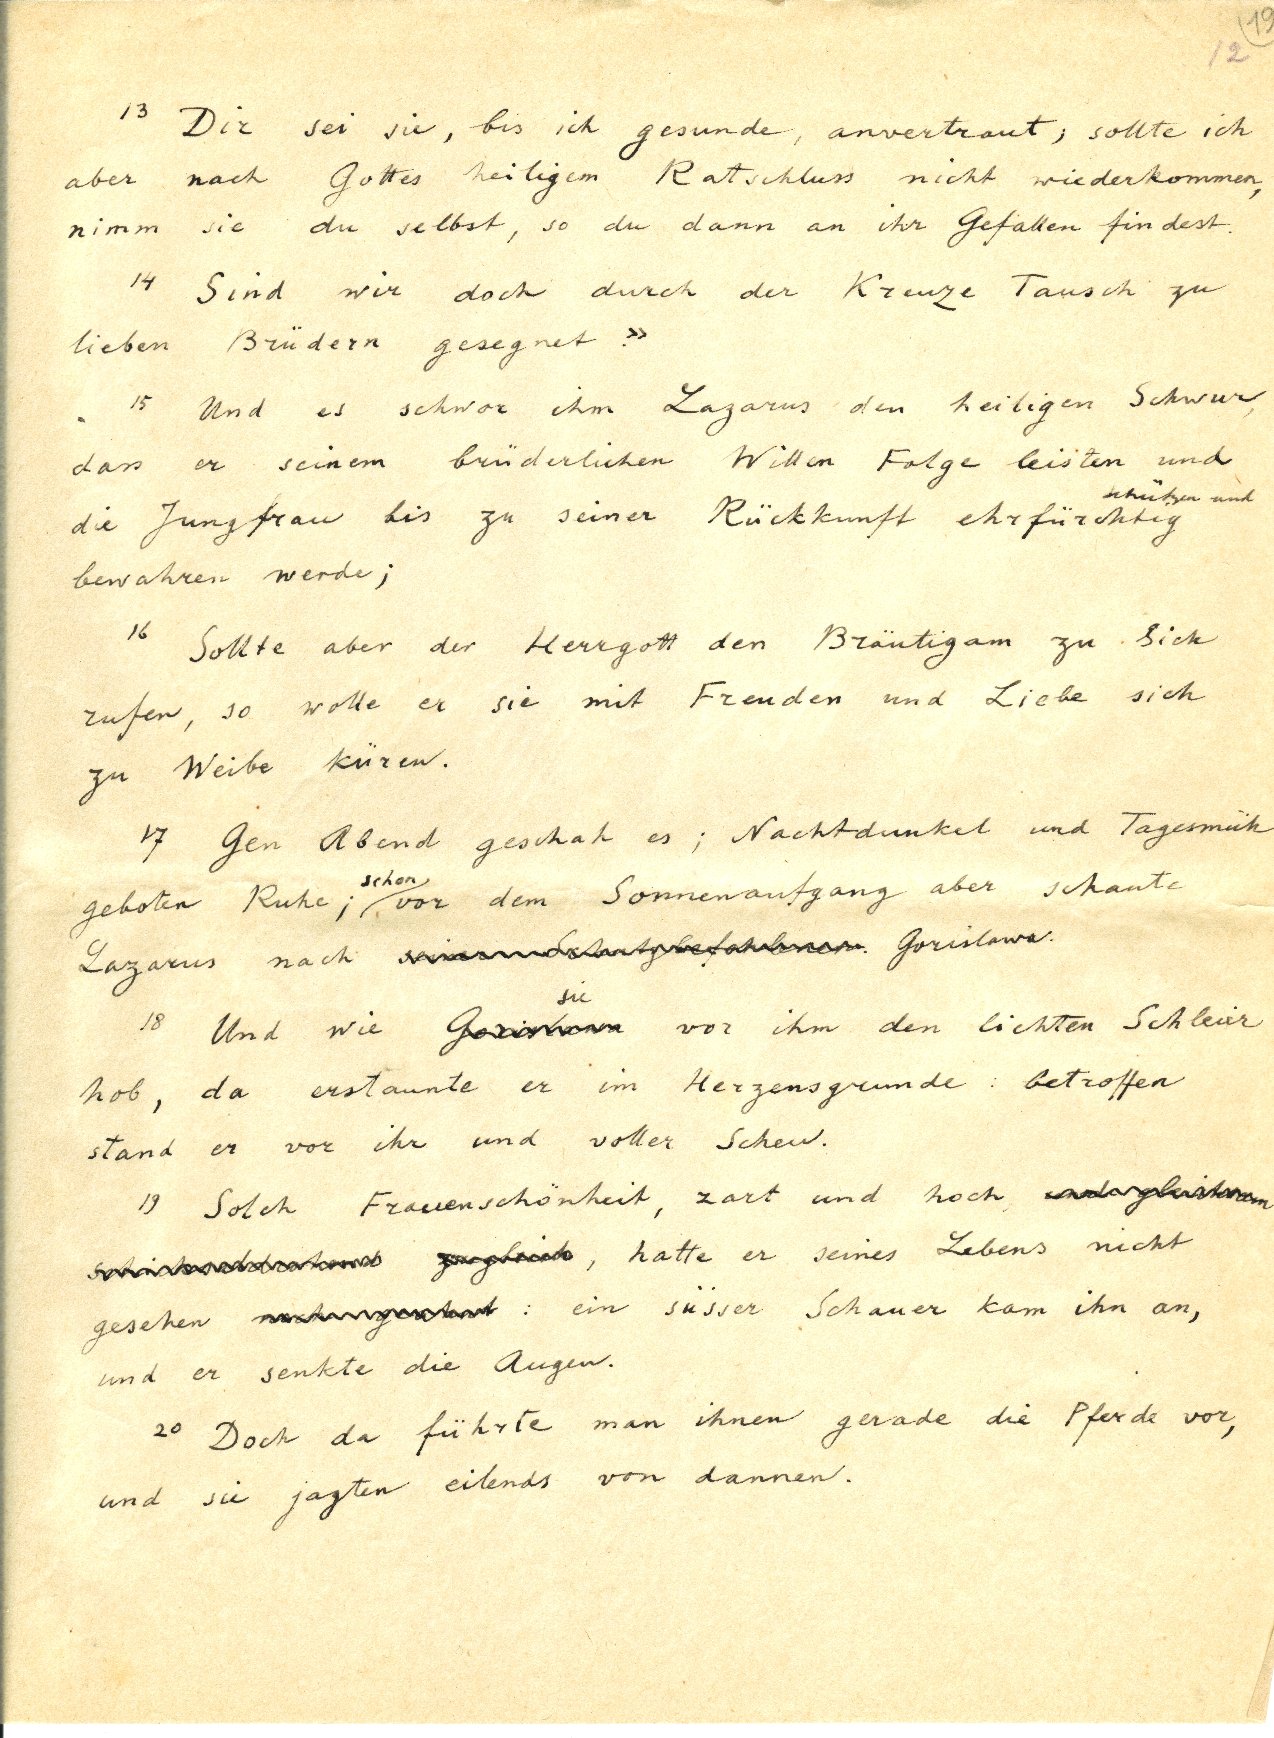 19
12
13 Dir sei sie, bis ich gesunde, anvertraut; sollte ich
aber nach Gottes heiligem Ratschluss nicht wiederkommen,
nimm sie du selbst, so du dann an ihr Gefallen findest.
14 Sind wir doch durch der Kreuze Tausch zu
lieben Brüdern gesegnet.»
15 Und es schwor ihm Lazarus den heiligen Schwur,
dass er seinem brüderlichen Willen Folge leisten und
schützen und
die Jungfrau bis zu seiner Rückkunft ehrfürchtig
bewahren werde;
16 Sollte aber der Herrgott den Bräutigam zu Sich
rufen, so wolle er sie mit Freuden und Liebe sich
zu Weibe küren.
17 Gen Abend geschah es; Nachtdunkel und Tagesmüh
geboten Ruhe; schon vor dem Sonnenaufgang aber schaute
Lazarus nach seiner Schutzbefohlenen Gorislawa.
sie
18 Und wie Gorislawa vor ihm den lichten Schleier
hob, da erstaunte er im Herzensgrunde: betroffen
stand er vor ihr und voller Scheu.
19 Solch Frauenschönheit, zart und hoch
zugleich, hatte er seines Lebens nicht
gesehen : ein süsser Schauer kam ihn an,
und er senkte die Augen.
20 Doch da führte man ihnen gerade die Pferde vor,
und sie jagten eilends von dannen.